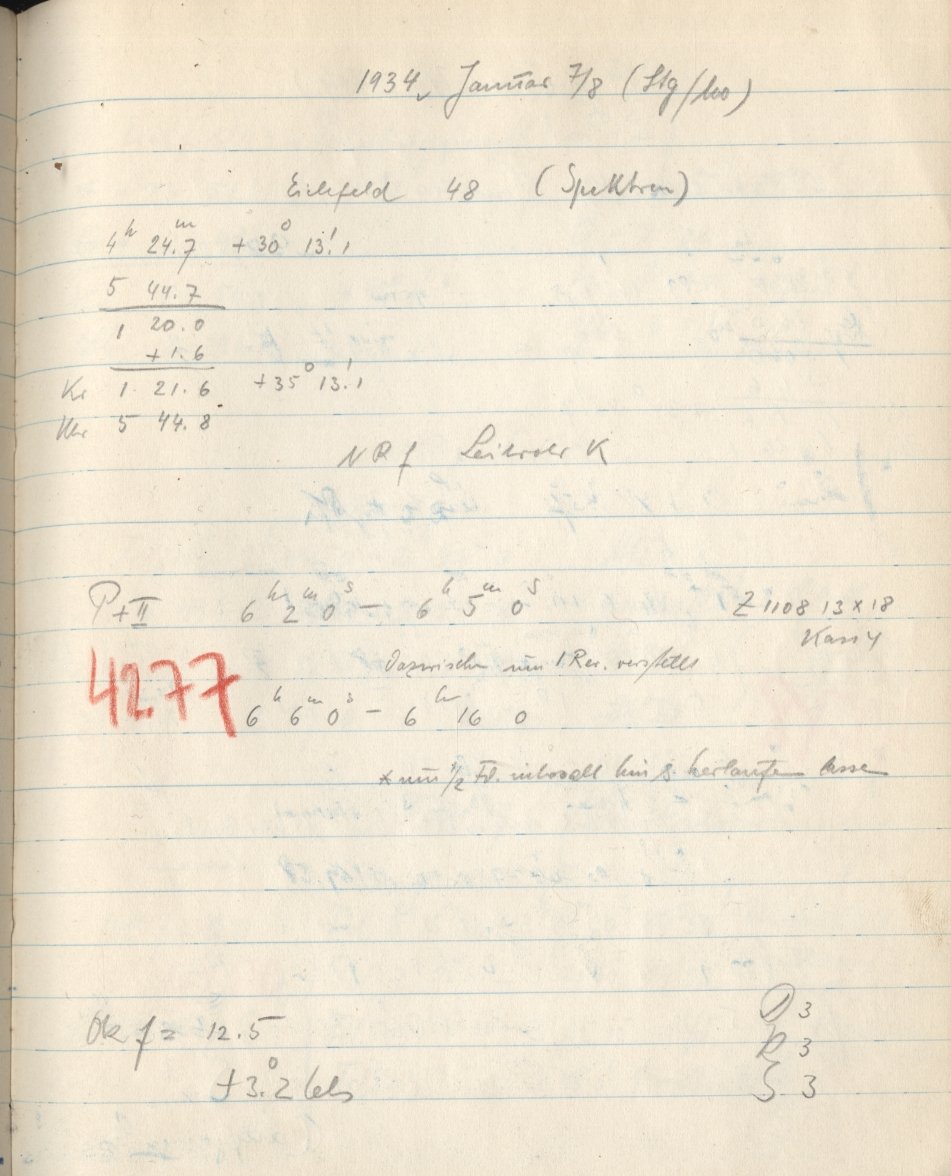 1934, Januar 7/8 (Stg/
Eichfeld 48 (Spektren)
4h 24.7m +30° 13.'1
5 44.7
1 20.0
+1.6
1 21.6 +35° 13.'1
Uhr 5 44.8
Leitrohr K
P+II 6h 2m 0s – 6h 5m 0s Z 1108 13x18
4277 dazwischen um 1 Rev. verstellt
6h 6m 0s – 6h 16 0
* um 1/2 Fd.
f = 12.5
+3.°2 Cels
D 3
R 3
S 3